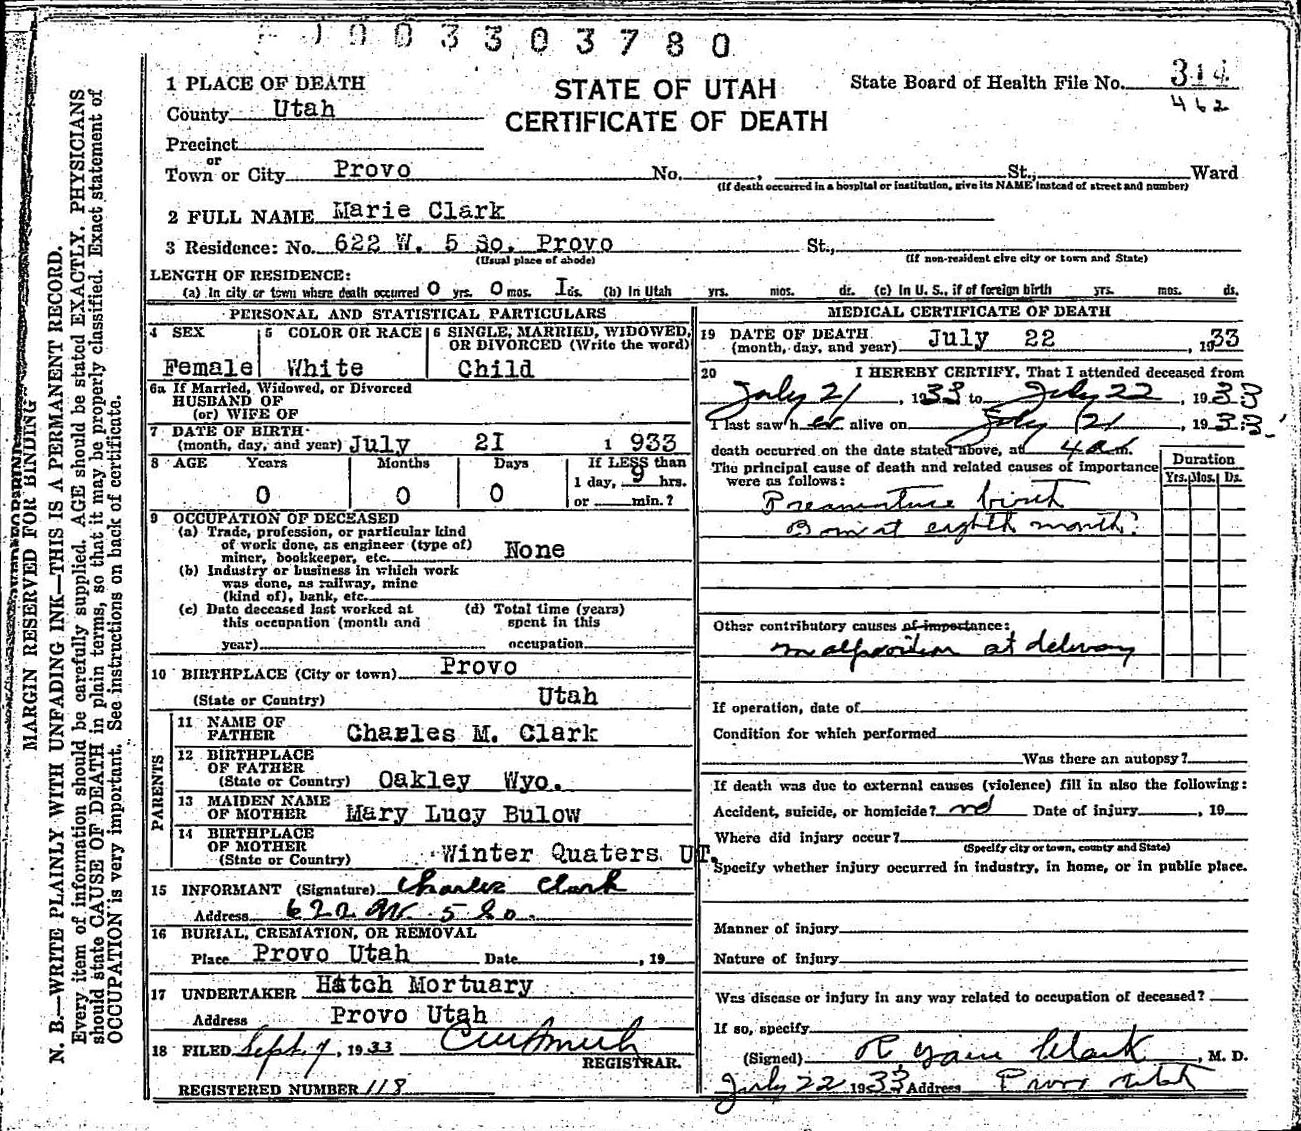 1003303780
1 PLACE OF DEATH
STATE OF UTAH
CERTIFICATE OF DEATH
State Board of Health File No. 314
462
County Utah
Precinct
or
Town or City Provo No. , St., Ward
(If death occurred in a hospital or institution, give its NAME instead of street and number)
2 FULL NAME Marie Clark
3 Residence: No. 622 W. 5 So. Provo St.,
(Usual place of abode) (If non-resident give city or town and State)
LENGTH OF RESIDENCE:
(a) In city or town where death occurred 0 yrs. 0 mos. I ds. (b) In Utah yrs. mos. ds. (c) In U. S., if of foreign birth yrs. mos. ds.
PERSONAL AND STATISTICAL PARTICULARS
4 SEX 5 COLOR OR RACE 6 SINGLE, MARRIED, WIDOWED, OR DIVORCED (Write the word)
Female White Child
6a If Married, Widowed, or Divorced
HUSBAND OF
(or) WIFE OF
7 DATE OF BIRTH
(month, day, and year) July 2I 1 933
8 AGE Years Months Days If LESS than
1 day, 9 hrs.
0 0 0 or min.?
9 OCCUPATION OF DECEASED
(a) Trade, profession, or particular kind
of work done, as engineer (type of)
miner, bookkeeper, etc. None
(b) Industry or business in which work
was done, as railway, mine
(kind of), bank, etc.
(c) Date deceased last worked at (d) Total time (years)
this occupation (month and spent in this
year) occupation
10 BIRTHPLACE (City or town) Provo
(State or Country) Utah
PARENTS
11 NAME OF
FATHER Charles M. Clark
12 BIRTHPLACE
OF FATHER
(State or Country) Oakley Wyo.
13 MAIDEN NAME
OF MOTHER Mary Lucy Bulow
14 BIRTHPLACE
OF MOTHER
(State or Country) Winter Quaters UT.
15 INFORMANT (Signature) Charles Clark
Address 622 W. 5 So.
16 BURIAL, CREMATION, OR REMOVAL
Place Provo Utah Date , 19
17 UNDERTAKER Hatch Mortuary
Address Provo Utah
18 FILED Sept. 7, 1933
REGISTRAR.
REGISTERED NUMBER 118
MEDICAL CERTIFICATE OF DEATH
19 DATE OF DEATH
(month, day, and year) July 22 , 1933
20 I HEREBY CERTIFY, That I attended deceased from
July 21, 1933 to July 22, 1933
I last saw her alive on July 21, 1933
death occurred on the date stated above, at 4 a m.
The principal cause of death and related causes of importance
were as follows:
Duration
Yrs. Mos. Ds.
Premature birth
Born at eighth month?
Other contributory causes of importance:
malposition at delivery
If operation, date of
Condition for which performed
Was there an autopsy?
If death was due to external causes (violence) fill in also the following:
Accident, suicide, or homicide? no Date of injury , 19
Where did injury occur?
(Specify city or town, county and State)
Specify whether injury occurred in industry, in home, or in public place.
Manner of injury
Nature of injury
Was disease or injury in any way related to occupation of deceased?
If so, specify
(Signed) Clark , M. D.
July 22 1933 Address Provo Utah
MARGIN RESERVED FOR BINDING
N. B.—WRITE PLAINLY WITH UNFADING INK—THIS IS A PERMANENT RECORD.
Every item of information should be carefully supplied. AGE should be stated EXACTLY. PHYSICIANS
should state CAUSE OF DEATH in plain terms, so that it may be properly classified. Exact statement of
OCCUPATION is very important. See instructions on back of certificate.